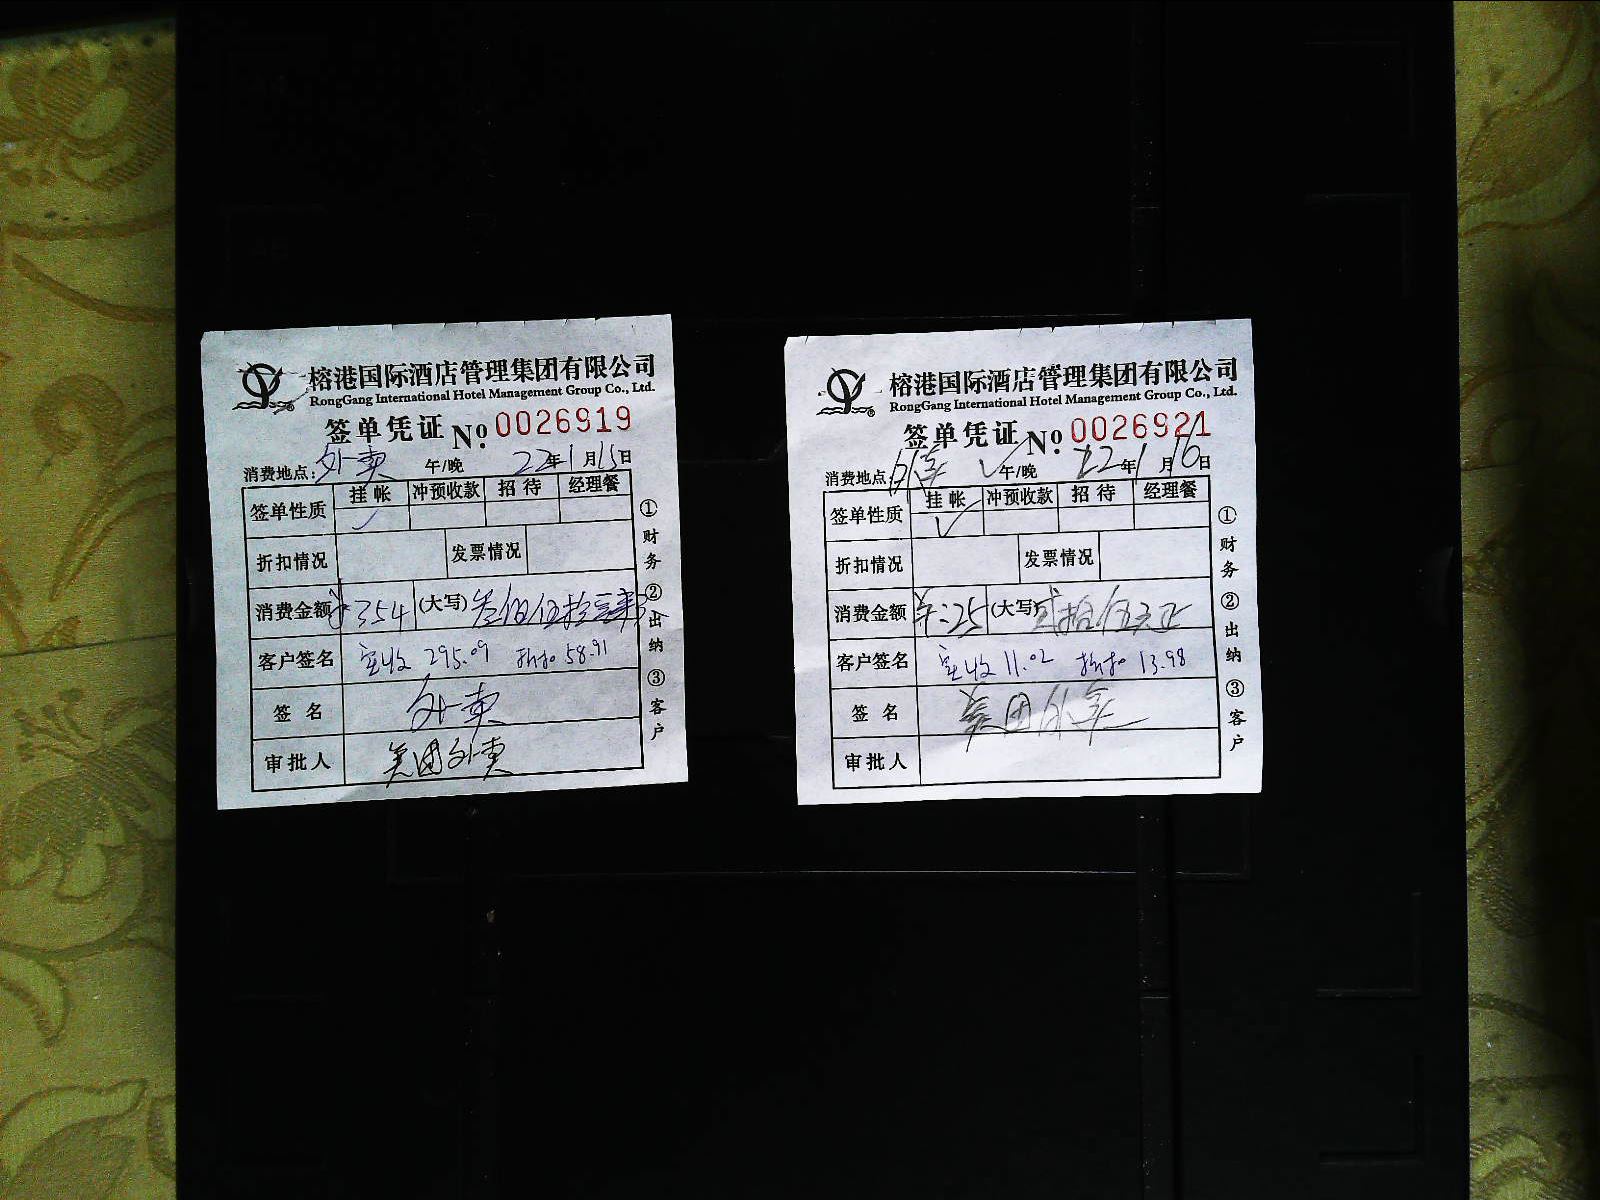 榕港国际酒店管理集团有限公司
RongGang International Hotel Management Group Co., Ltd.
签单凭证 No: 0026919
消费地点: 外卖 午/晚 22年1月15日
签单性质 挂帐 冲预收款 招待 经理餐
✓
折扣情况 发票情况
消费金额 ¥354 (大写) 叁佰伍拾
客户签名 实收 295.09 折扣 58.91
签名 外卖
审批人 美团外卖
①财务 ②出纳 ③客户
榕港国际酒店管理集团有限公司
RongGang International Hotel Management Group Co., Ltd.
签单凭证 No: 0026921
消费地点: 外卖 ✓午/晚 22年1月16日
签单性质 挂帐 冲预收款 招待 经理餐
✓
折扣情况 发票情况
消费金额 ¥:25 (大写) 贰拾伍元正
客户签名 实收 11.02 折扣 13.98
签名 美团外卖
审批人
①财务 ②出纳 ③客户